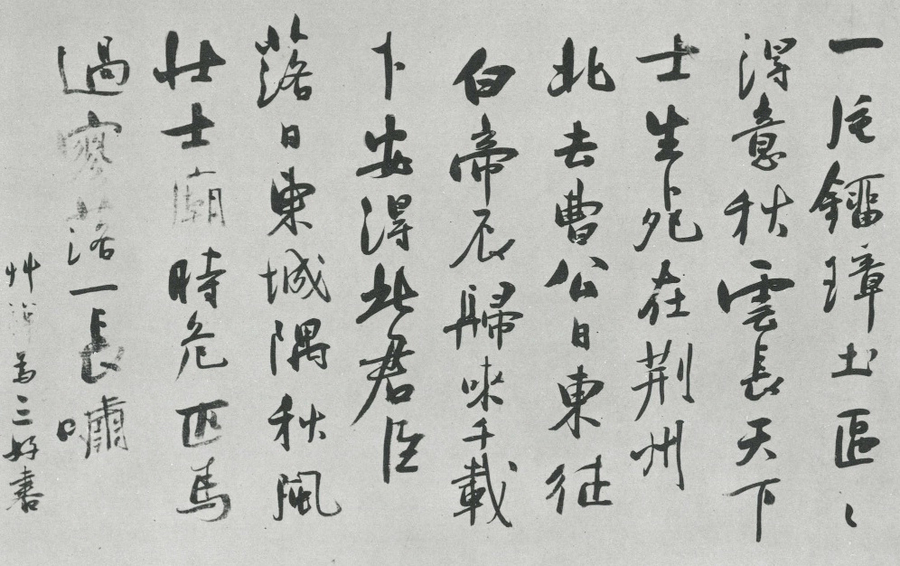 一鐳璋土區〻
得意秋雲長天下
士生死在荊州
北去曹公日東征
白帝辰歸來千載
下安得此君臣
落日東城隅秋風
壯士廟時危匹馬
過寥落一長嘯
艸為三好書